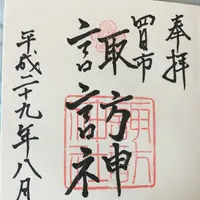 奉拝
四日市
諏訪神
諏訪
神社
平成二十九年八月